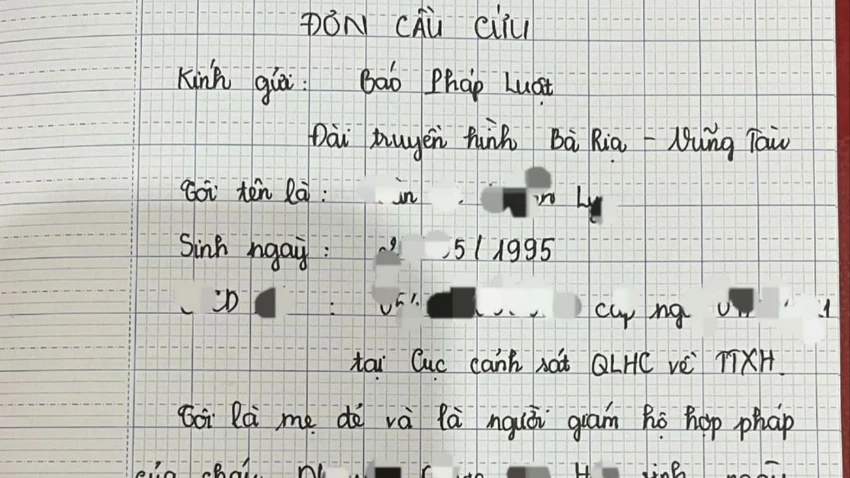 ĐƠN CẦU CỨU
Kính gửi: Báo Pháp Luật
Đài truyền hình Bà Rịa - Vũng Tàu
Tôi tên là: Ly
Sinh ngày: 5/1995
: cấp ng
tại Cục cảnh sát QLHC về TTXH.
Tôi là mẹ đẻ và là người giám hộ hợp pháp
của cháu sinh ngày